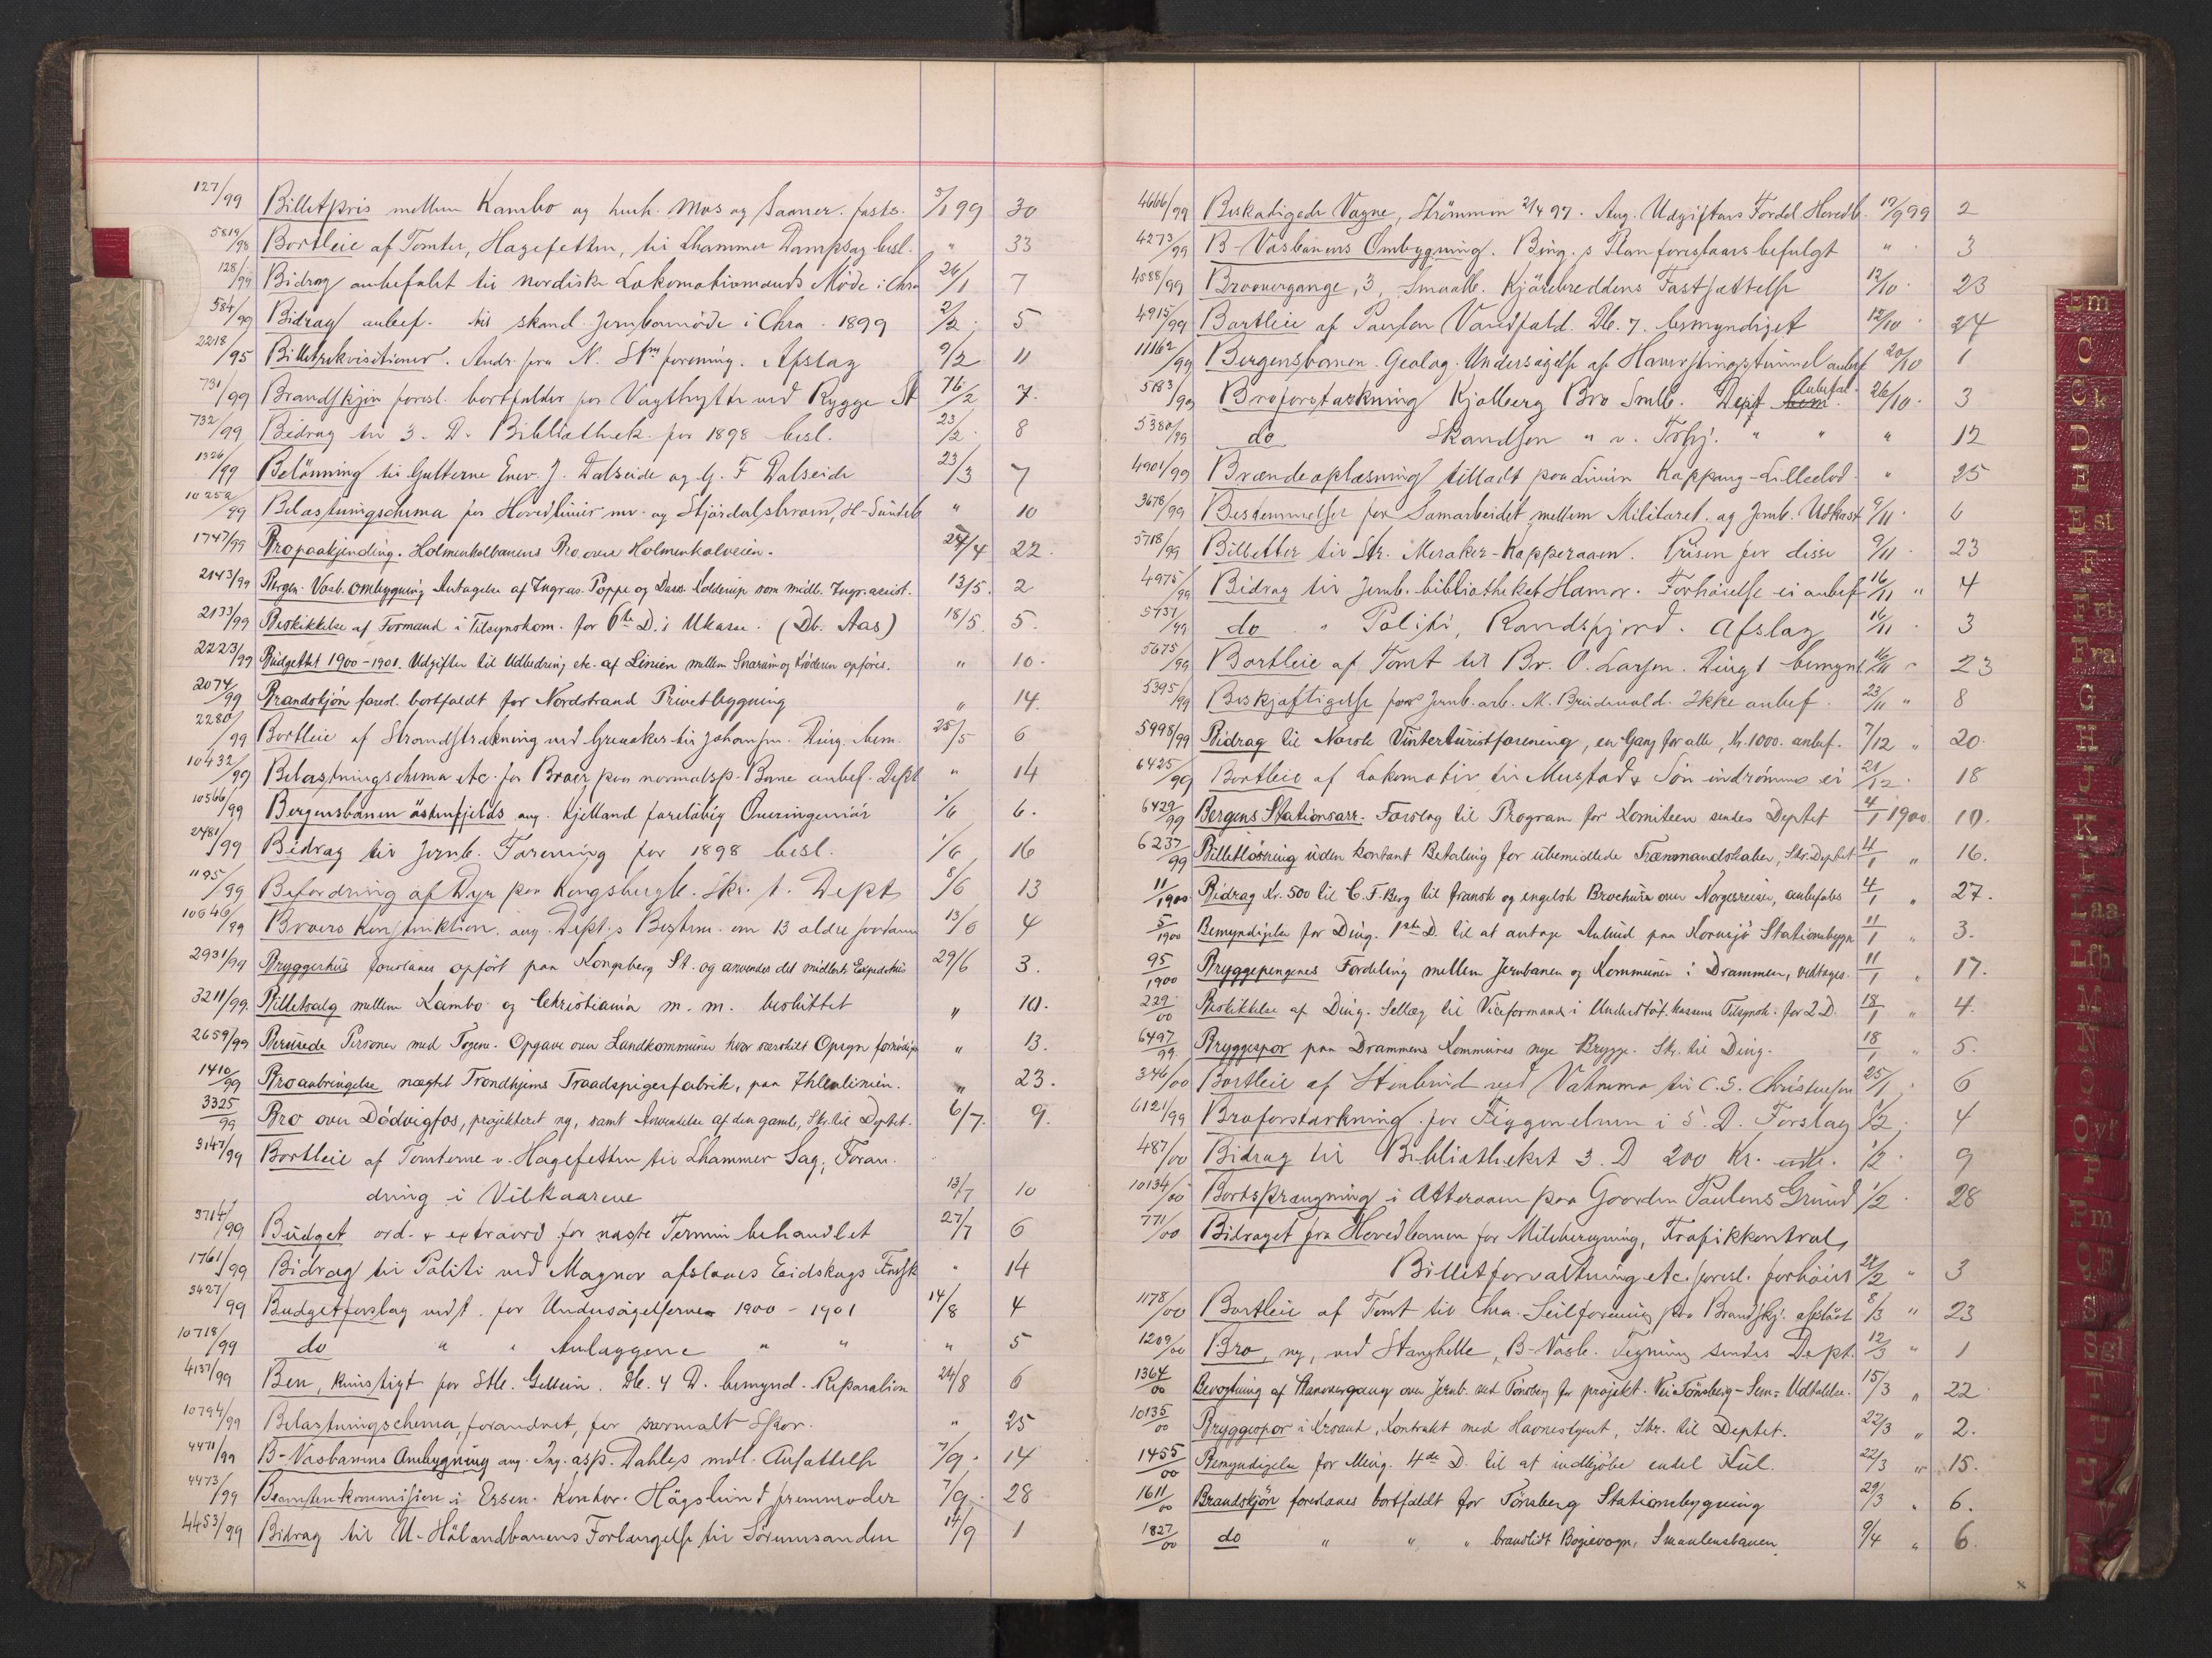 127/99 Billetpris mellem Kambo og hush. Mos og Saaner. fasts. 5/1 99 30
5819/98 Bortleie af Tomter, Hagefetten, til Lhammer Dampsag besl. " 33
128/99 Bidrag anbefalet til nordiske Lokomotivmænds Möde i Chra 26/1 7
584/99 Bidrag anbef. til skand. Jernbanemöde i Chra. 1899 2/2 5
2218/95 Billetrekvisitioner. Andr. fra N. forening. Afslag 9/2 11
731/99 Brandskjön foresl. bortfalder for Vagthytte ved Rygge St 16/2 7.
732/99 Bidrag til 3. D. Bibliothek for 1898 besl. 23/2 8
1326/99 Belönning til Gutterne Enev. J. Dalseide og G. F Dalseide 23/3 7
10252/99 Belastningschema for Hovedlinier mv. og Stjördalsbroen, H-Sündb " 10
1747/99 Bropaakjending. Holmenkolbanens Bro over Holmenkolveien. 27/4 22.
2143/99 Bergen-Vosb. Ombygning Antagelse af Ingras. Poppe og Dass. Kolderup som midl. Ingr.assist. 13/5. 2
2133/99 Beskikkelse af Formand i Tilsynskom. for 6te D.s Ukasse. (Db. Aas) 18/5. 5.
2223/99 Budgettet 1900-1901. Udgifter til Udbedring etc. af Linien mellem Snarum og Kröderen opföres. " 10.
2074/99 Brandskjön foresl. bortfaldt for Nordstrand Privetbygning " 14.
2280/99 Bortleie af Strandstrekning ved Greaaker til Johansen. Ding. bem. 25/5 6
10432/99 Belastningschema etc. for Broer paa normalsp. Bane anbef. Dept " 14
10566/99 Bergensbanen östenfjelds ang. Kjelland foreløbig Overingeniör 1/6 6.
2481/99 Bidrag til Jernb. Forening for 1898 besl. 1/6 16
1195/99 Befordring af Dyr paa Kongsbergb. Skr. t. Dept 8/6 13
10646/99 Broers Konstruktion. ang. Dept.s Bestem. om 13 aldre saadanne 13/6 4
2931/99 Bryggerhus foreslaaes opfört paa Kongsberg St. og anvendes det midlert. Expedithus 29/6 3.
3211/99. Billetsalg mellem Kambo og Christiania m. m. besluttet " 10.
2659/99 Berusede Personer med Togene. Opgave over Landkommuner hvor særskilt Opsyn fornödiges " 13.
1410/99 Broanbringelse nægtet Trondhjems Traadspigerfabrik, paa Ihlenlinien. " 23.
3325/99 Bro over Dödvigfos, projekteret ny, samt Anvendelse af den gamle, Skr. til Deptet. 6/7. 9.
3147/99 Bortleie af Tomterne v. Hagefetten til Lhammer Sag, Foran-
dring i Vilkaarene 13/7 10
3714/99 Budget ord. & extraord for næste Termin behandlet 27/7 6
1761/99 Bidrag til Politi ved Magnor afslaaes Eidskogs " 14
3427/99 Budgetforslag vedt. for Undersögelserne 1900 - 1901 14/8 4
10718/99 do " " Anlæggene " " " 5
4137/99 Ben, kunstigt for Stb. Gellein. Db. 4 D. bemynd. Reparation 24/8 6
10794/99 Belastningschema, forandret, for normalt Spor. " 25
4471/99 B-Vosbanens Ombygning ang. Ing. asp. Dahles mdl. Ansættelse 7/9. 14
4473/99 Beamtenkommission i Ersen. Kontor. Hägslund fremmöder 7/9. 28
4453/99 Bidrag til U-Hölandbanens Forlængelse til Sörumsanden 14/9 1
4666/99 Beskadigede Vogne, Strömmen 21/4 97. Ang. Udgifters Fordel. Hovedb. 17/9 99 2
4273/99 B-Vosbanens Ombygning. Bing.s Plan foreslaaes befulgt " 3
4588/99 Broovergange, 3, Smaalb. Kjörebreddens Fastsættelse 12/10. 23
4915/99 Bortleie af Paulsen Vandfald. Db. 7. bemyndiget 12/10 24
11162/99 Bergensbanen. Geolog. Undersögelse af Haverstingstunnel anbef 20/10 1
5183/99 Broforstærkning Kjolberg Bro Smlb. Dept Anbefal. 26/10. 3
5380/99 do Skandsen " v. Trhj. " " " 12
4901/99 Brændeoplæsning tilladt paa Linien Koppang-Lilleelvd. " 25
3678/99 Bestemmelser for Samarbeidet mellem Militæret og Jernb. Udkast 9/11. 6
5718/99 Billetter til Str. Meraker-Kopperaaen. Prisen for disse 9/11 23
4975/99 Bidrag til Jernb. bibliotheket Hamar. Forhöielse ei anbef 16/11 " 4
5737/99 do " Politi, Randsfjord. Afslag 16/11 3
5675/99 Bortleie af Tomt til Br. O. Larsen. Ding 1 bemynd. 16/11 " 23
5395/99 Beskjæftigelse for Jernb. arb. M. Brudevold. Ikke anbef. 23/11 " 8
5998/99 Bidrag til Norsk Vinterturistforening, en Gang for alle, Kr. 1000. anbef. 7/12 " 20.
6425/99 Bortleie af Lokomotiv til Mustad & Sön indrömmes ei 21/12. 18
6429/99 Bergens Stationsarr. Forslag til Program for Komiteen sendes Deptet 4/1 1900. 10.
6237/99 Billetlösning uden kontant Betaling for ubemidlede Trænmandskaber, Skr. Deptet 4/1 " 16.
11/1900 Bidrag Kr. 500 til C. F. Berg til fransk og engelsk Brochure over Norgesreiser, anbefales 4/1 " 27.
5/1900 Bemyndigelse for Ding. 1ste D. til at antage Anbud paa Kornsjö Stationsbygn 11/1 " 3.
95/1900 Bryggepengenes Fordeling mellem Jernbanen og Kommunen i Drammen, vedtages. 11/1 " 17.
229/00 Beskikkelse af Ding. Selleg til Viceformand i Understöt. kassens Tilsynsk. for 2 D. 18/1 " 4.
6497/99. Bryggespor paa Drammens Kommunes nye Brygge. Skr. til Ding. 18/1 " 5.
346/00 Bortleie af Stenbrud ved Vakeroe til C. S. Christensen 25/1. 6
6121/99 Broforstærkning for Figgenelven i 5. D. Forslag 1/2. 4
487/00 Bidrag til Bibliotheket 3. D 200 Kr. 1/2. 9
10134/00 Bortsprængning i Atteraaen paa Gaarden Paulens Grund 1/2. 28
771/00 Bidraget fra Hovedbanen for Milebergning, Trafikkontrol,
Billetforvaltning etc. foresl. forhöiet 22/2 " 3
1178/00 Bortleie af Tomt til Chra. Seilforening paa Brandskj. afslaaet 8/3 " 23
1209/00 Bro, ny, ved Stanghelle, B-Vosb. Tegning sendes Dept. 12/3 " 1
1364/00 Bevogtning af Planovergang over Jernb. ved Tönsberg for projekt. Vei Tönsberg-Sem= Udtalelse. 15/3 " 22
10135/00 Bryggespor i Krsand, Kontrakt med Havnestyret, Skr. til Deptet. 22/3 " 2.
1455/00 Bemyndigelse for Ming. 4de D. til at indkjöbe endel Kul. 22/3 " 15.
1611/00 Brandskjön foreslaaes bortfaldt for Tönsberg Stationsbygning 29/3 " 6.
1827/00 do " " " brandlidt Bogievogn, Smaalensbanen 9/4 " 6.
Em
C
Ck
D
E
Est
F
Frt
Fra
G
H
J
K
L
Laa
Lfb
M
N
O
Ovf
P
Pm
Q R
S
Sgl
T
U
V